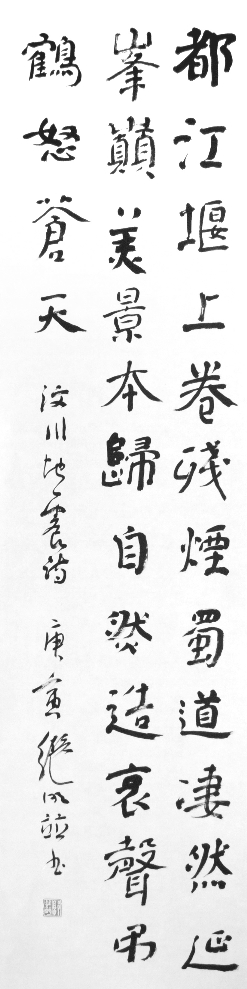 都江堰上卷殘煙蜀道凄然延
峯巔美景本歸自然造哀聲吊
鶴怒蒼天 汶川地震詩 庚寅